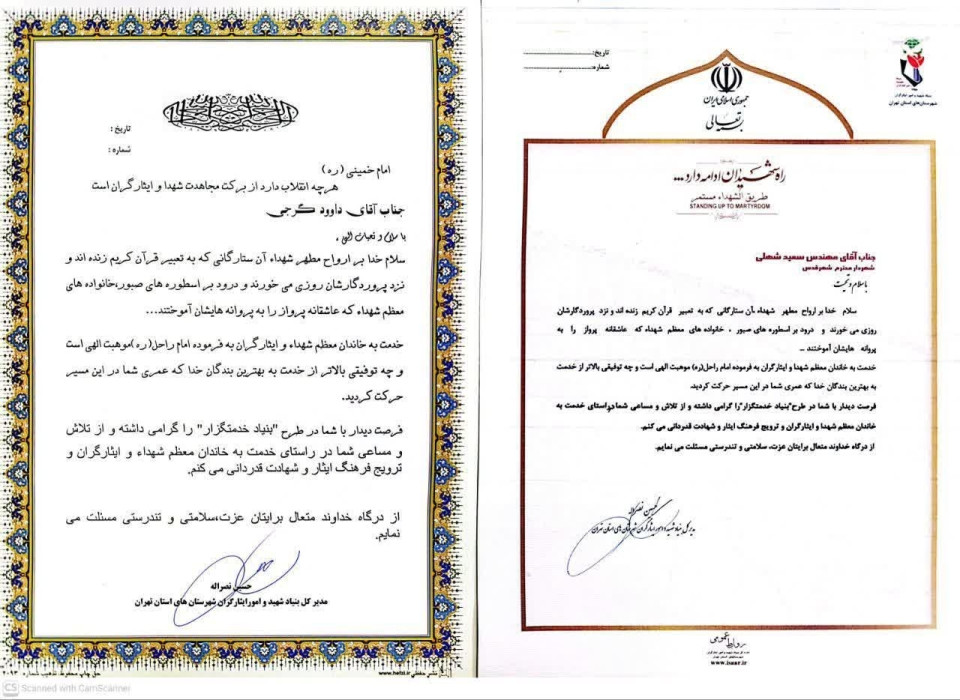 تاریخ :
شماره :
امام خمینی (ره)
هرچه انقلاب دارد از برکت مجاهدت شهدا و ایثارگران است
جناب آقای داوود گرجی
با سلام و تحیات الهی ،
سلام خدا بر ارواح مطهر شهداء آن ستارگانی که به تعبیر قرآن کریم زنده اند و
نزد پروردگارشان روزی می خورند و درود بر اسطوره های صبور،خانواده های
معظم شهداء که عاشقانه پرواز را به پروانه هایشان آموختند...
خدمت به خاندان معظم شهداء و ایثارگران به فرموده امام راحل(ره)موهبت الهی است
و چه توفیقی بالاتر از خدمت به بهترین بندگان خدا که عمری شما در این مسیر
حرکت کردید.
فرصت دیدار با شما در طرح "بنیاد خدمتگزار" را گرامی داشته و از تلاش
و مساعی شما در راستای خدمت به خاندان معظم شهداء و ایثارگران و
ترویج فرهنگ ایثار و شهادت قدردانی می کنم.
از درگاه خداوند متعال برایتان عزت،سلامتی و تندرستی مسئلت می
نمایم.
حسین نصراله
مدیر کل بنیاد شهید و امورایثارگران شهرستان های استان تهران
www.hefzi.ir نشر حفظی
حق چاپ محفوظ تذهیب شماره
CS Scanned with CamScanner
تاریخ:
شماره:
جمهوری اسلامی ایران
بسمه تعالی
بنیاد شهید و امور ایثارگران
شهرستان‌های استان تهران
راه شهیدان ادامه دارد...
طریق الشهداء مستمر
STANDING UP TO MARTYRDOM
جناب آقای مهندس سعید شهلی
شهردار محترم شهرقدس
با سلام و تحیت
سلام خدا بر ارواح مطهر شهداء ،آن ستارگانی که به تعبیر قرآن کریم زنده اند و نزد پروردگارشان
روزی می خورند و درود بر اسطوره های صبور ، خانواده های معظم شهداء که عاشقانه پرواز را به
پروانه هایشان آموختند ...
خدمت به خاندان معظم شهدا و ایثارگران به فرموده امام راحل(ره) موهبت الهی است و چه توفیقی بالاتر از خدمت
به بهترین بندگان خدا که عمری شما در این مسیر حرکت کردید.
فرصت دیدار با شما در طرح"بنیاد خدمتگزار"را گرامی داشته و از تلاش و مساعی شما در راستای خدمت به
خاندان معظم شهدا و ایثارگران و ترویج فرهنگ ایثار و شهادت قدردانی می کنم.
از درگاه خداوند متعال برایتان عزت، سلامتی و تندرستی مسئلت می نمایم.
حسین نصراله
مدیر کل بنیاد شهید و امور ایثارگران شهرستان های استان تهران
روابط عمومی
www.isaar.ir